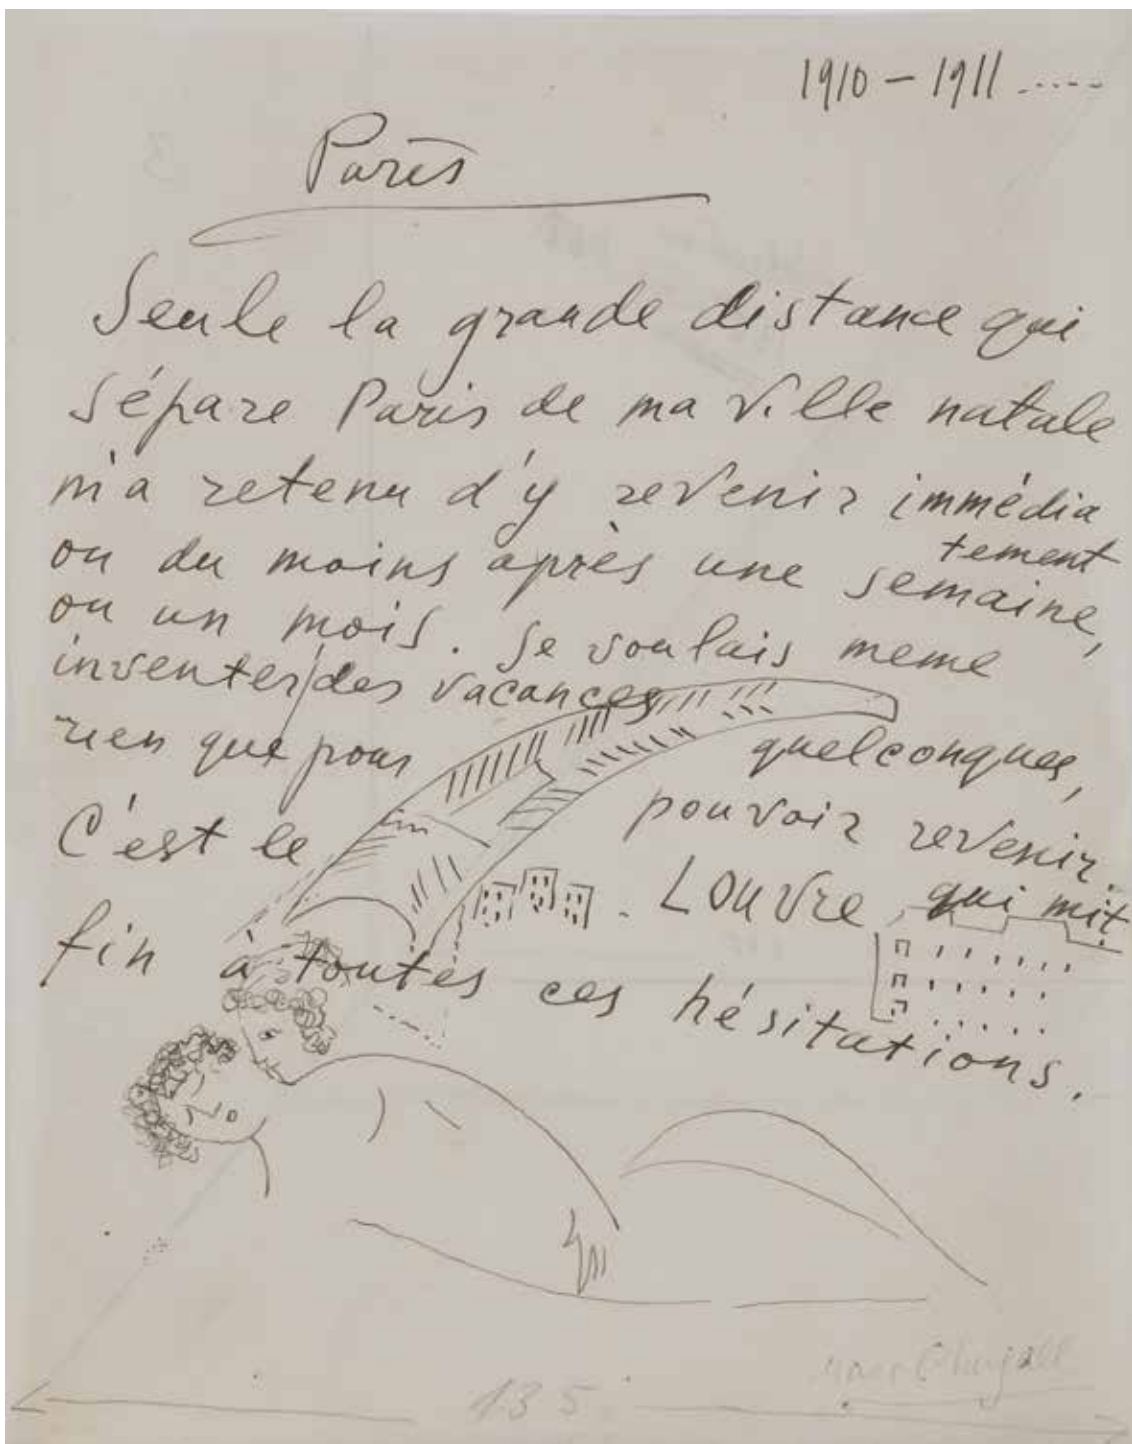 1910 – 1911 .....
Paris
Seule la grande distance qui
sépare Paris de ma ville natale
m'a retenu d'y revenir immédia
tement
ou du moins après une semaine,
ou un mois. Je voulais meme
inventer des vacances
quelconques,
rien que pour
pouvoir revenir.
C'est le Louvre, qui mit
fin à toutes ces hésitations.
Marc Chagall
135